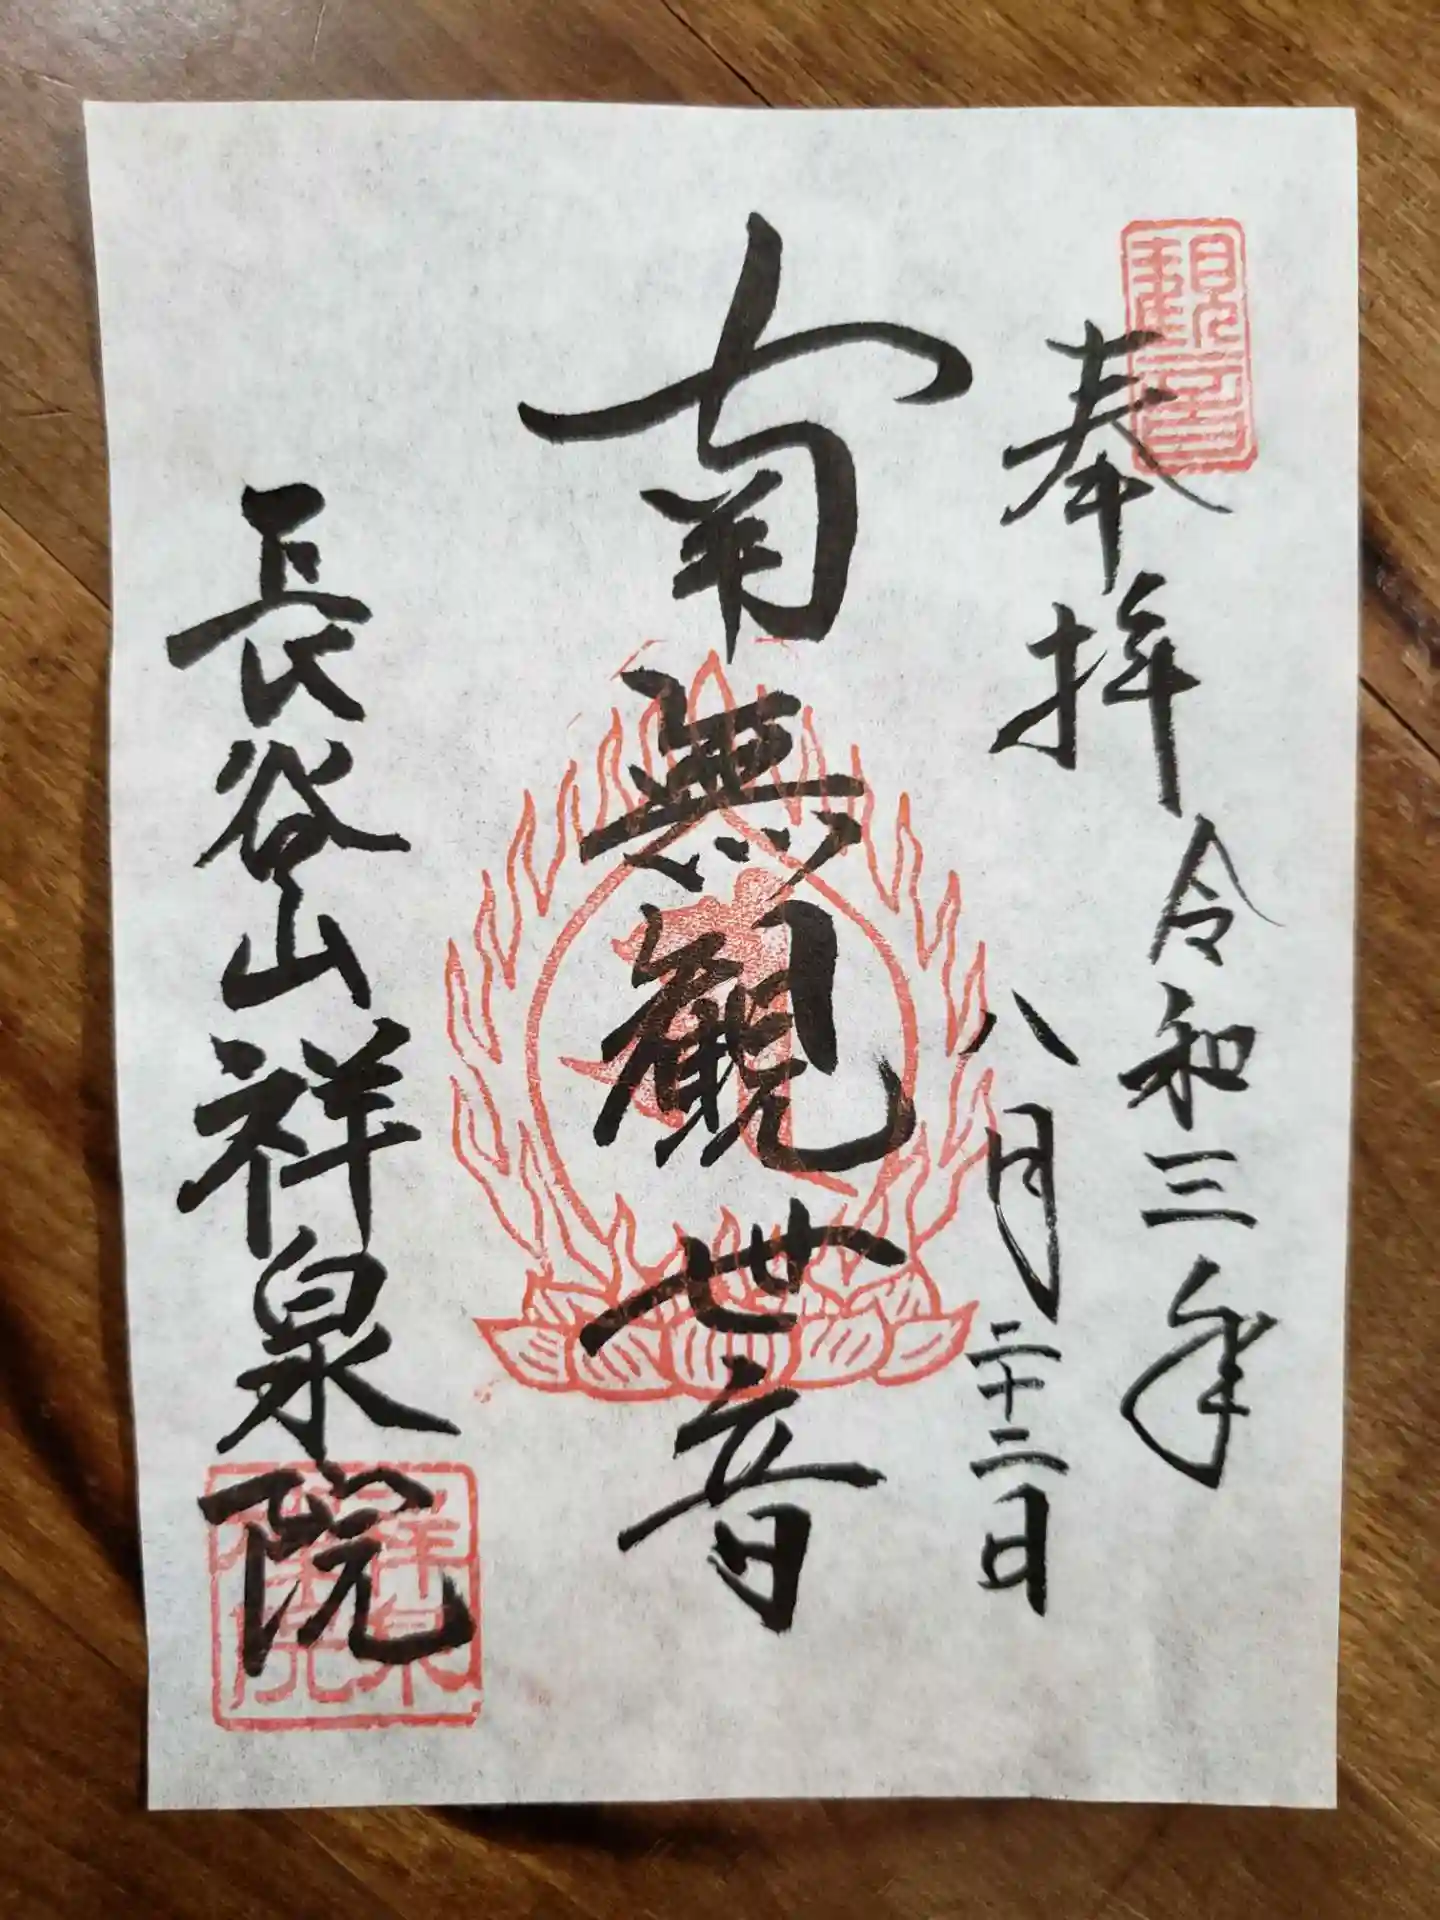 奉拝
令和三年
八月二十二日
南無観世音
長谷山祥泉院
観音
祥泉院